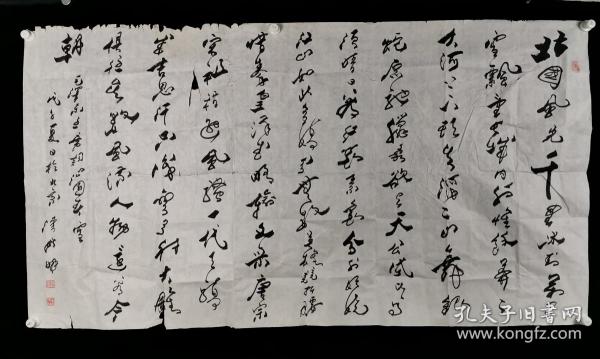 北国风光千里冰封万
雪飘 城内外惟余莽莽
大河上下顿失滔滔山舞银
蛇原驰蜡象欲与天公试比高
须晴日看红装素裹分外妖娆
江山如此多娇引无数英雄竞折腰
惜秦皇汉武略输文采唐宗
宋祖稍逊风骚一代天骄
成吉思汗只识弯弓射大雕
俱往矣数风流人物还看今
朝
毛泽东 沁园春雪
戊子夏日于北京
孔夫子旧书网
www.kongfz.com